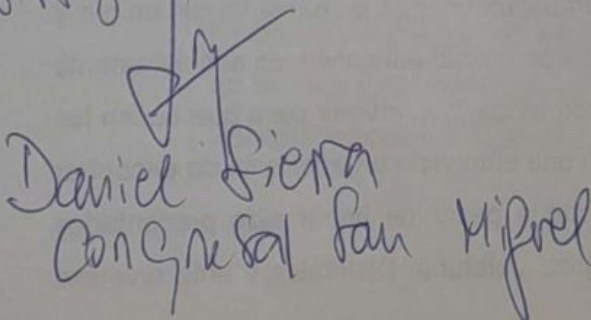 Daniel Sierra
Congresal San Miguel